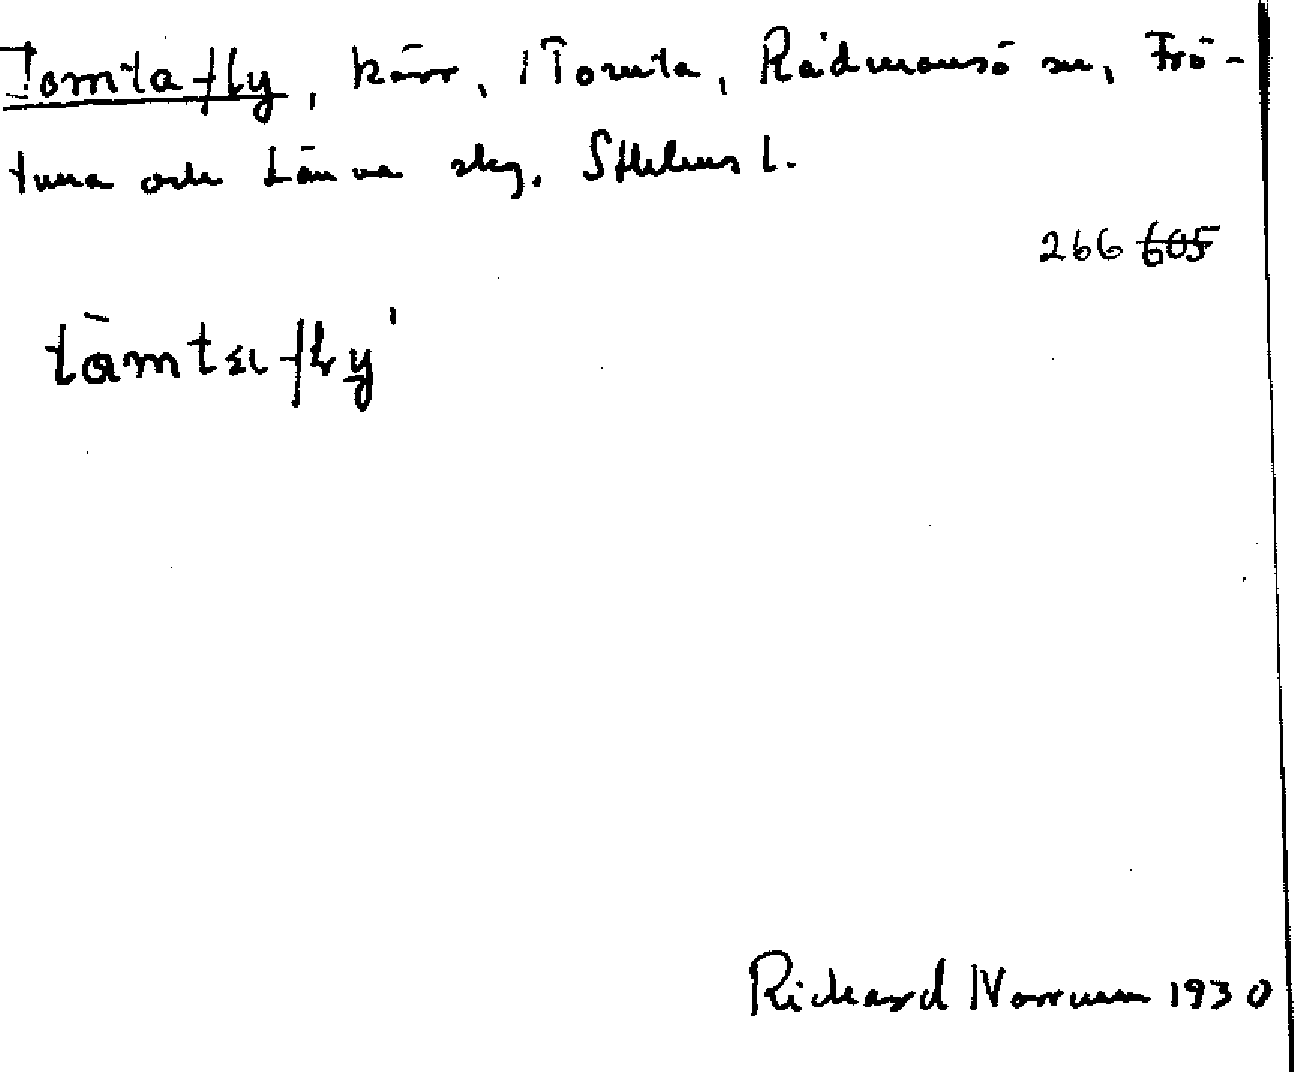 Tomta fly, kärr, i Tomta, Rådmansö sn, Frö-
tuna och Länna skg. Sthlms l.
266 605
Richard Norrman 1930